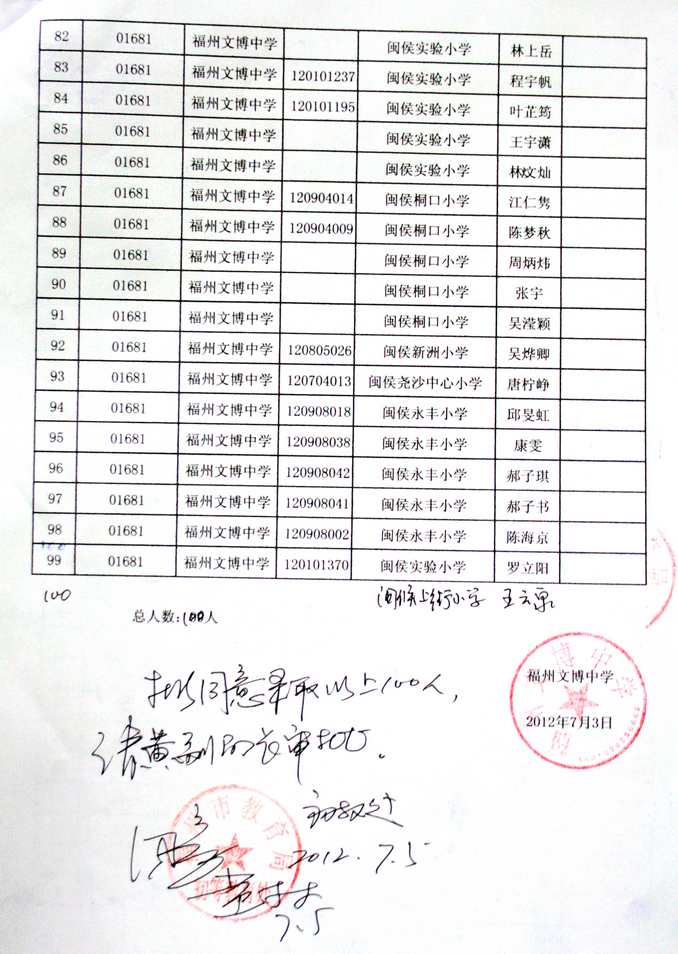 82 01681 福州文博中学 闽侯实验小学 林上岳
83 01681 福州文博中学 120101237 闽侯实验小学 程宇帆
84 01681 福州文博中学 120101195 闽侯实验小学 叶芷筠
85 01681 福州文博中学 闽侯实验小学 王宇潇
86 01681 福州文博中学 闽侯实验小学 林炆灿
87 01681 福州文博中学 120904014 闽侯桐口小学 江仁隽
88 01681 福州文博中学 120904009 闽侯桐口小学 陈梦秋
89 01681 福州文博中学 闽侯桐口小学 周炳炜
90 01681 福州文博中学 闽侯桐口小学 张宇
91 01681 福州文博中学 闽侯桐口小学 吴滢颖
92 01681 福州文博中学 120805026 闽侯新洲小学 吴烨卿
93 01681 福州文博中学 120704013 闽侯尧沙中心小学 唐柠峥
94 01681 福州文博中学 120908018 闽侯永丰小学 邱旻虹
95 01681 福州文博中学 120908038 闽侯永丰小学 康雯
96 01681 福州文博中学 120908042 闽侯永丰小学 郝子琪
97 01681 福州文博中学 120908041 闽侯永丰小学 郝子书
98 01681 福州文博中学 120908002 闽侯永丰小学 陈海京
99 01681 福州文博中学 120101370 闽侯实验小学 罗立阳
100 闽侯上街小学 王云泉
总人数:100人
福州文博中学
2012年7月3日
拟同意录取以上100人，
请黄副局长审批。
初教处
市教育局
初等教育处
2012.7.5
7.5